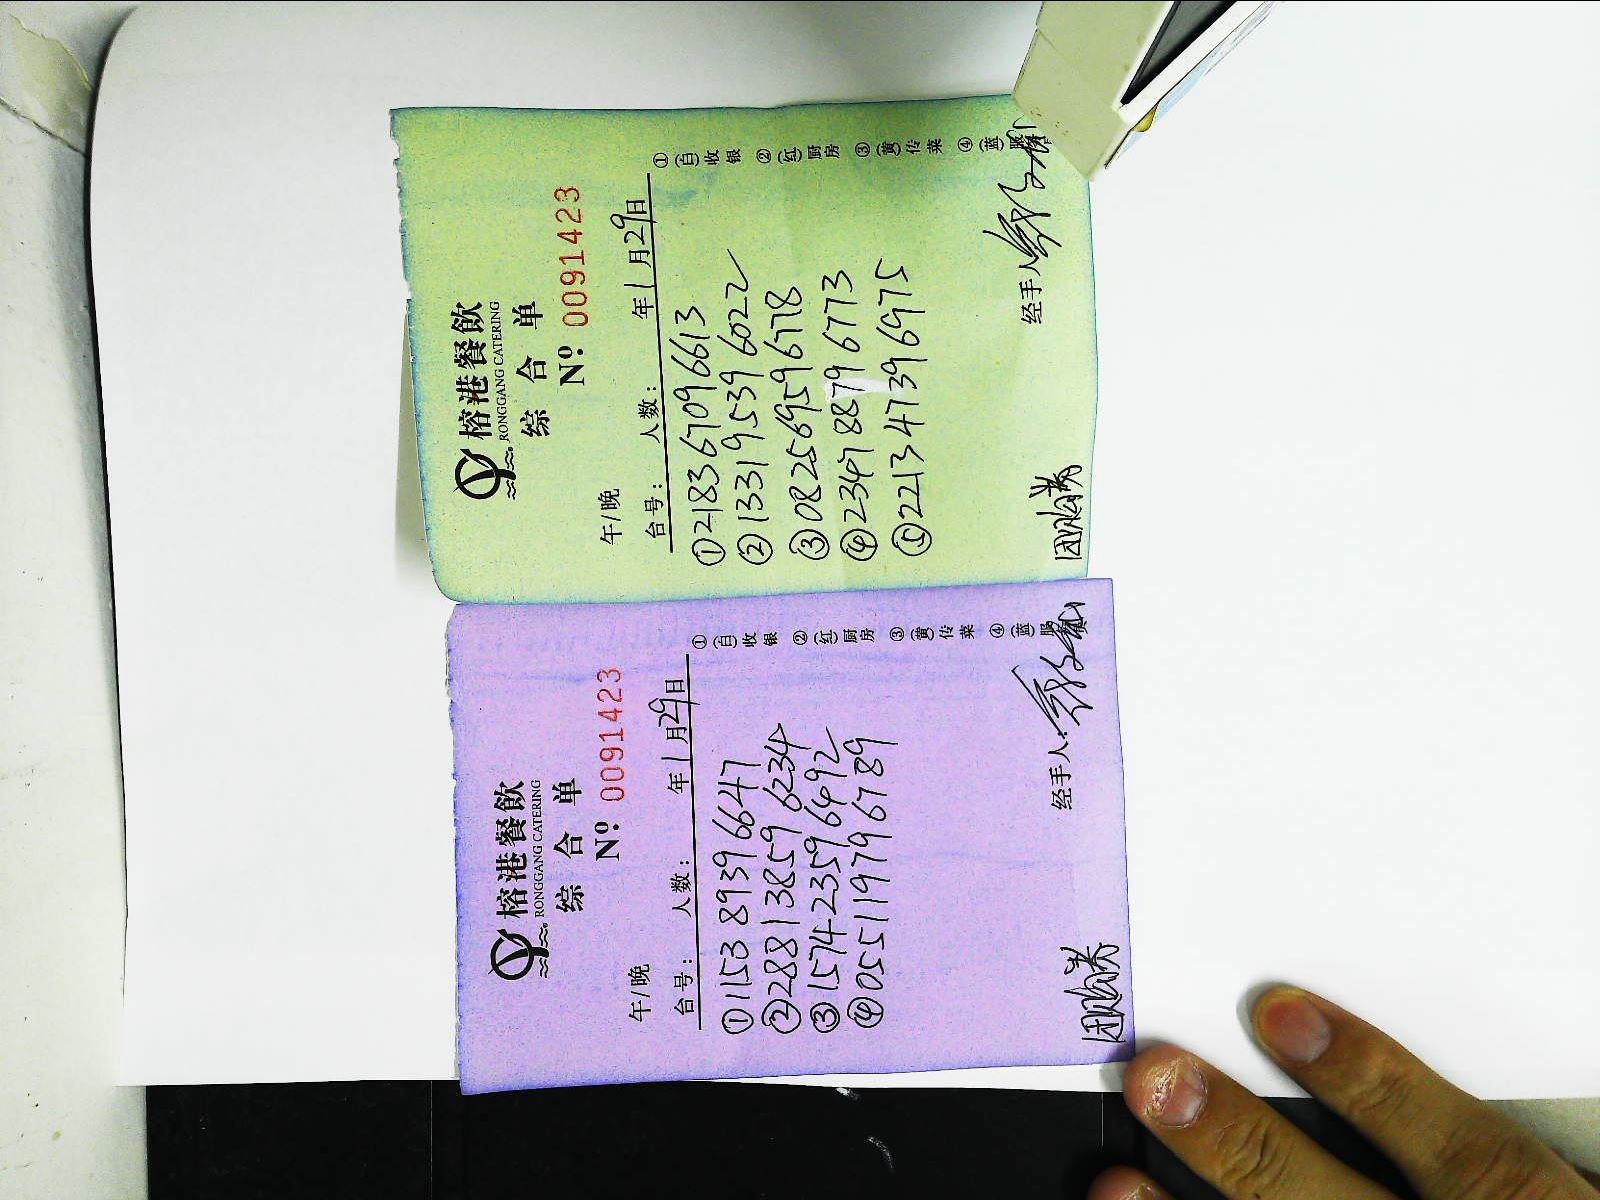 榕港餐飲
RONGGANG CATERING
综合单
Nº: 0091423
午/晚
台号: 人数: 年1月29日
①2183 6709 6613
②1331 9539 6022
③0825 6959 6778
④2347 8879 6773
⑤2213 4739 6975
①(白)收银 ②(红)厨房 ③(黄)传菜 ④(蓝)
经手人
榕港餐飲
RONGGANG CATERING
综合单
Nº: 0091423
午/晚
台号: 人数: 年1月29日
①1153 8939 6647
②2881 3859 6234
③1574 2359 6492
④0551 1979 6789
①(白)收银 ②(红)厨房 ③(黄)传菜 ④(蓝)
经手人: